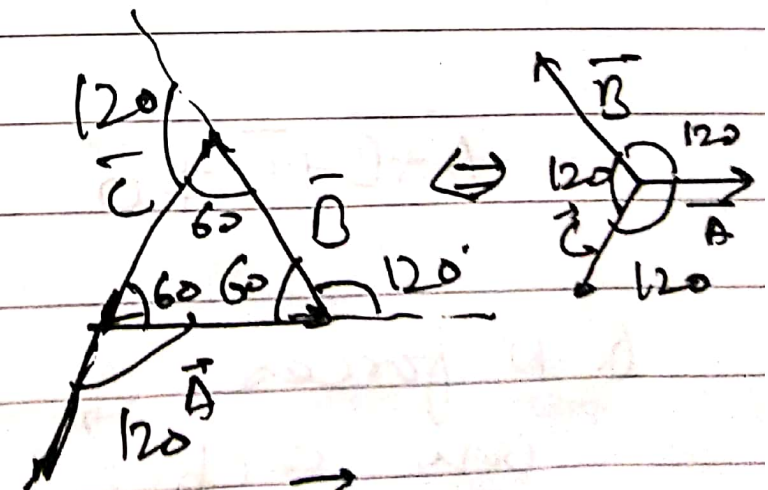 120
C⃗
60
B⃗
60 60 120°
A⃗
120
⇔
B⃗
120
120
A⃗
C⃗
120